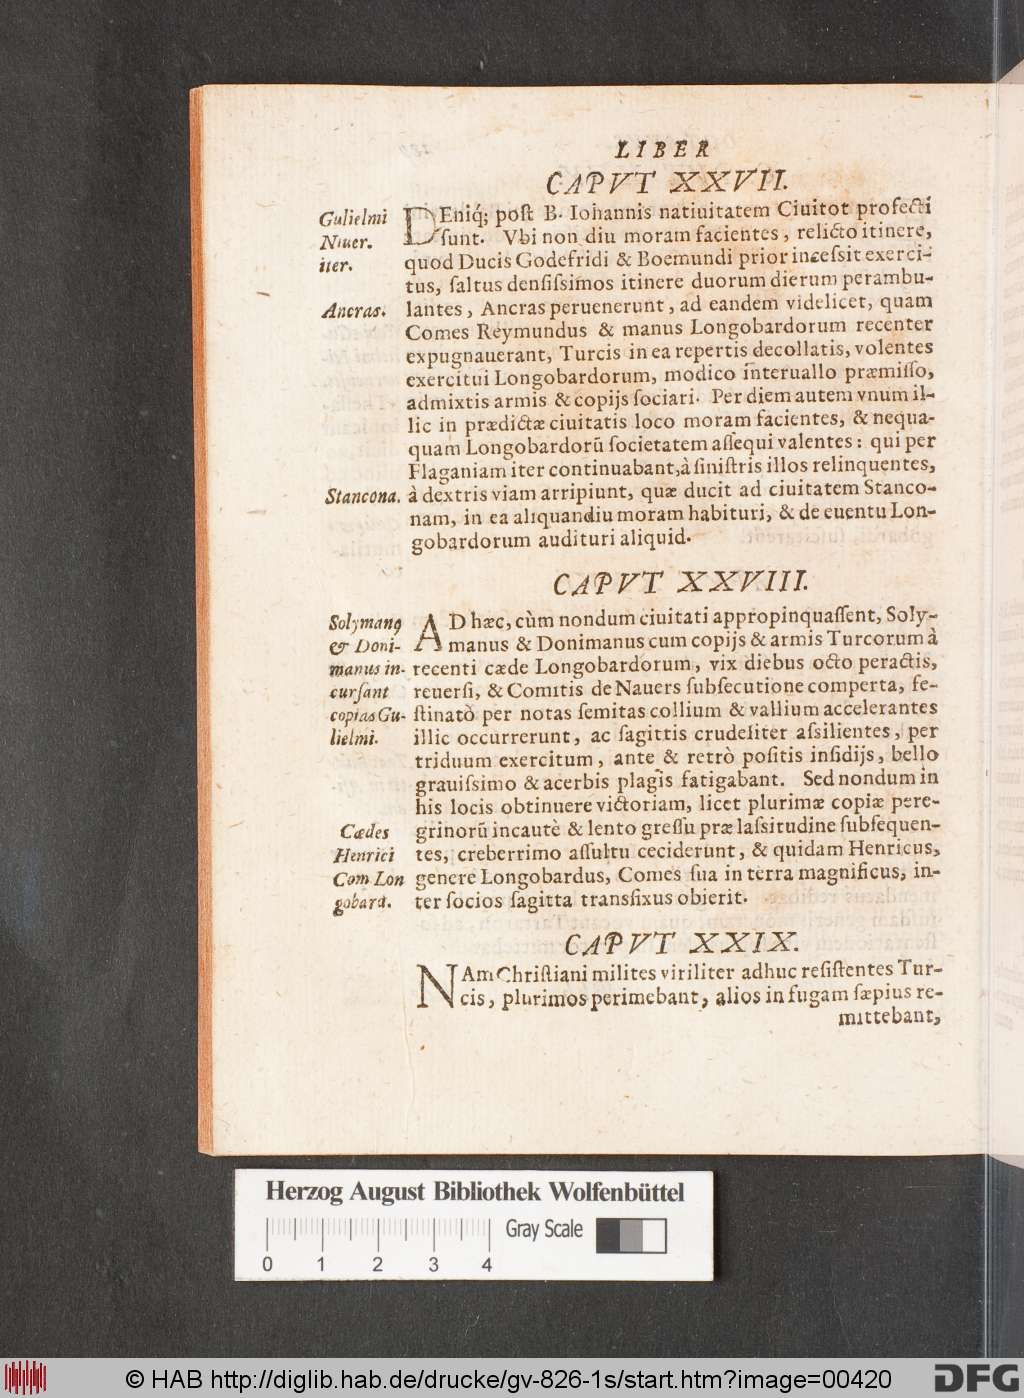 LIBER
CAPVT XXVII.
Gulielmi
Niuer.
iter.
DEniq́; post B. Iohannis natiuitatem Ciuitot profecti
sunt. Vbi non diu moram facientes, relicto itinere,
quod Ducis Godefridi & Boemundi prior incessit exerci-
tus, saltus densissimos itinere duorum dierum perambu-
Ancras.
lantes, Ancras peruenerunt, ad eandem videlicet, quam
Comes Reymundus & manus Longobardorum recenter
expugnauerant, Turcis in ea repertis decollatis, volentes
exercitui Longobardorum, modico interuallo præmisso,
admixtis armis & copijs sociari. Per diem autem vnum il-
lic in prædictæ ciuitatis loco moram facientes, & nequa-
quam Longobardorū societatem assequi valentes: qui per
Flaganiam iter continuabant, à sinistris illos relinquentes,
Stancona.
à dextris viam arripiunt, quæ ducit ad ciuitatem Stanco-
nam, in ea aliquandiu moram habituri, & de euentu Lon-
gobardorum audituri aliquid.
CAPVT XXVIII.
Solymanꝯ
& Doni-
manus in-
cursant
copias Gu-
lielmi.
AD hæc, cùm nondum ciuitati appropinquassent, Soly-
manus & Donimanus cum copijs & armis Turcorum à
recenti cæde Longobardorum, vix diebus octo peractis,
reuersi, & Comitis de Nauers subsecutione comperta, fe-
stinatò per notas semitas collium & vallium accelerantes
illic occurrerunt, ac sagittis crudeliter assilientes, per
triduum exercitum, ante & retrò positis insidijs, bello
grauissimo & acerbis plagis fatigabant. Sed nondum in
his locis obtinuere victoriam, licet plurimæ copiæ pere-
Cædes
Henrici
Com. Lon
gobard.
grinorū incautè & lento gressu præ lassitudine subsequen-
tes, creberrimo assultu ceciderunt, & quidam Henricus,
genere Longobardus, Comes sua in terra magnificus, in-
ter socios sagitta transfixus obierit.
CAPVT XXIX.
NAm Christiani milites viriliter adhuc resistentes Tur-
cis, plurimos perimebant, alios in fugam sæpius re-
mittebant,
Herzog August Bibliothek Wolfenbüttel
Gray Scale
0 1 2 3 4
© HAB http://diglib.hab.de/drucke/gv-826-1s/start.htm?image=00420
DFG